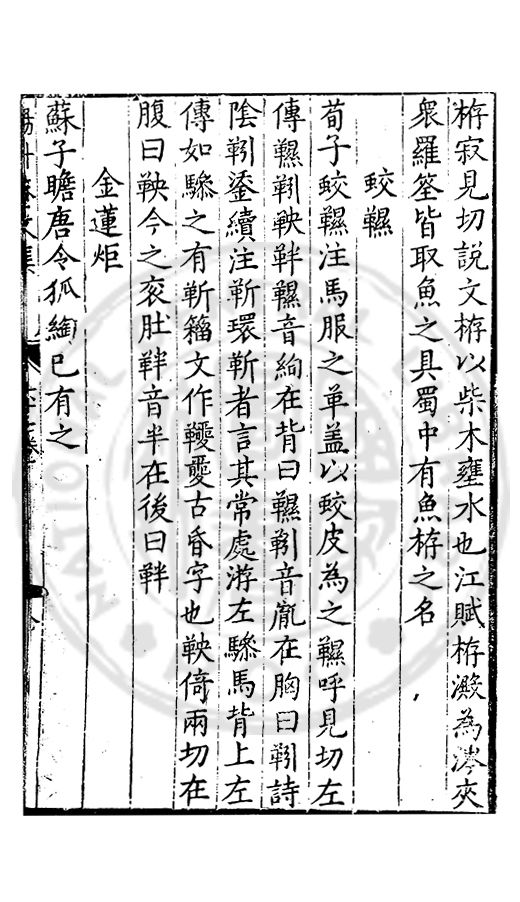 栫寂見切說文栫以柴木壅水也江賦栫澱為涔夾
衆羅筌皆取魚之具蜀中有魚栫之名
蛟韅
荀子蛟韅注馬服之革盖以蛟皮為之韅呼見切左
傳韅靷鞅靽韅音絢在背曰韅靷音胤在胸曰靷詩
陰靷鋈續注靳環靳者言其常處游左驂馬背上左
傳如驂之有靳籀文作䪍古昏字也鞅倚兩切在
腹曰鞅今之衮肚靽音半在後曰靽
金蓮炬
蘇子瞻唐令狐綯巳有之